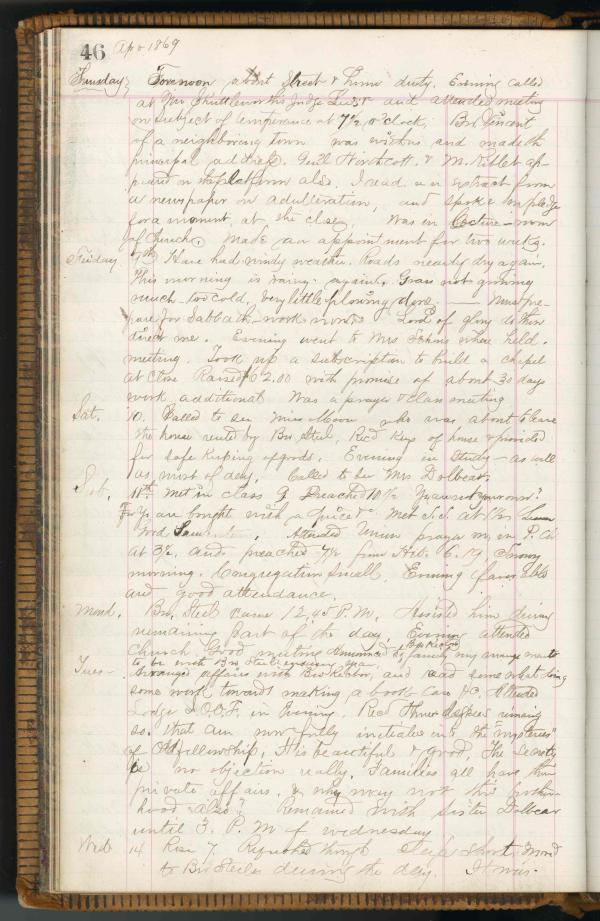 46 Apr 1869
Thursday Forenoon about Street & home duty. Evening called
at Mr Shuttleworths Judge and attended meeting
on subject of temperance at 7 1/2 o'clock. Bro Vincent
of a neighboring town was with us and made the
principal address. & M. ap-
peared on the platform also. I read an extract from
a newspaper on adulteration, and spoke
for a moment at the close. Was in Lecture-room
of Church. Made an appointment for two weeks.
Friday 9th Have had windy weather. Roads nearly dry again.
This morning is rainy again. Grass not growing
much - too cold, very little plowing done. — Must pre-
pare for Sabbath-work now. Lord of glory do thou
direct me. Evening went to Mrs where held
meeting. Took up a subscription to build a chapel
at close Raised 2.00 with promise of about 30 days
work additional. Was a prayer & class meeting
Sat. 10. Called to see Miss Moon who was about to leave
the house rented by Bro Steel, Rec'd keys of house & provided
for safe keeping of goods. Evening in Study - as well
as most of day. Called to see Mrs Dolbear.
Sab. 11th Met in class 9 Preached 10 1/2 Ye are not your own?
For ye are bought with a price &c. Met S.S. at
Attended Union prayer m. in P. Ch
at 3 1/2, and preached 7 1/2 from Heb. 6.19 Snowy
morning. Congregation small. Evening favorable
and good attendance.
Mond. Bro. Steel came 12,45 P.M. Assisted him during
remaining part of the day, Evening attended
church. Good meeting Announced my arrangements
to be with Bro Steel ensuing year.
Tues- Arranged affairs with Bro and read some what doing
some work towards making a book-case &c. Attended
Lodge I.O.O.F. in Evening. Rec'd three degrees remaining
so that am now fully initiated into the "mysteries"
of Oddfellowship, It is beautiful & good, The secrecy
is no objection really. Families all have their
private affairs, & why may not this brother-
hood also? Remained with Sister Dolbear
until 3. P.M of wednesday
Wed 14 Rose 7 Refreshed though Sleep short, Moved
to Bro Steeles during the day. It was